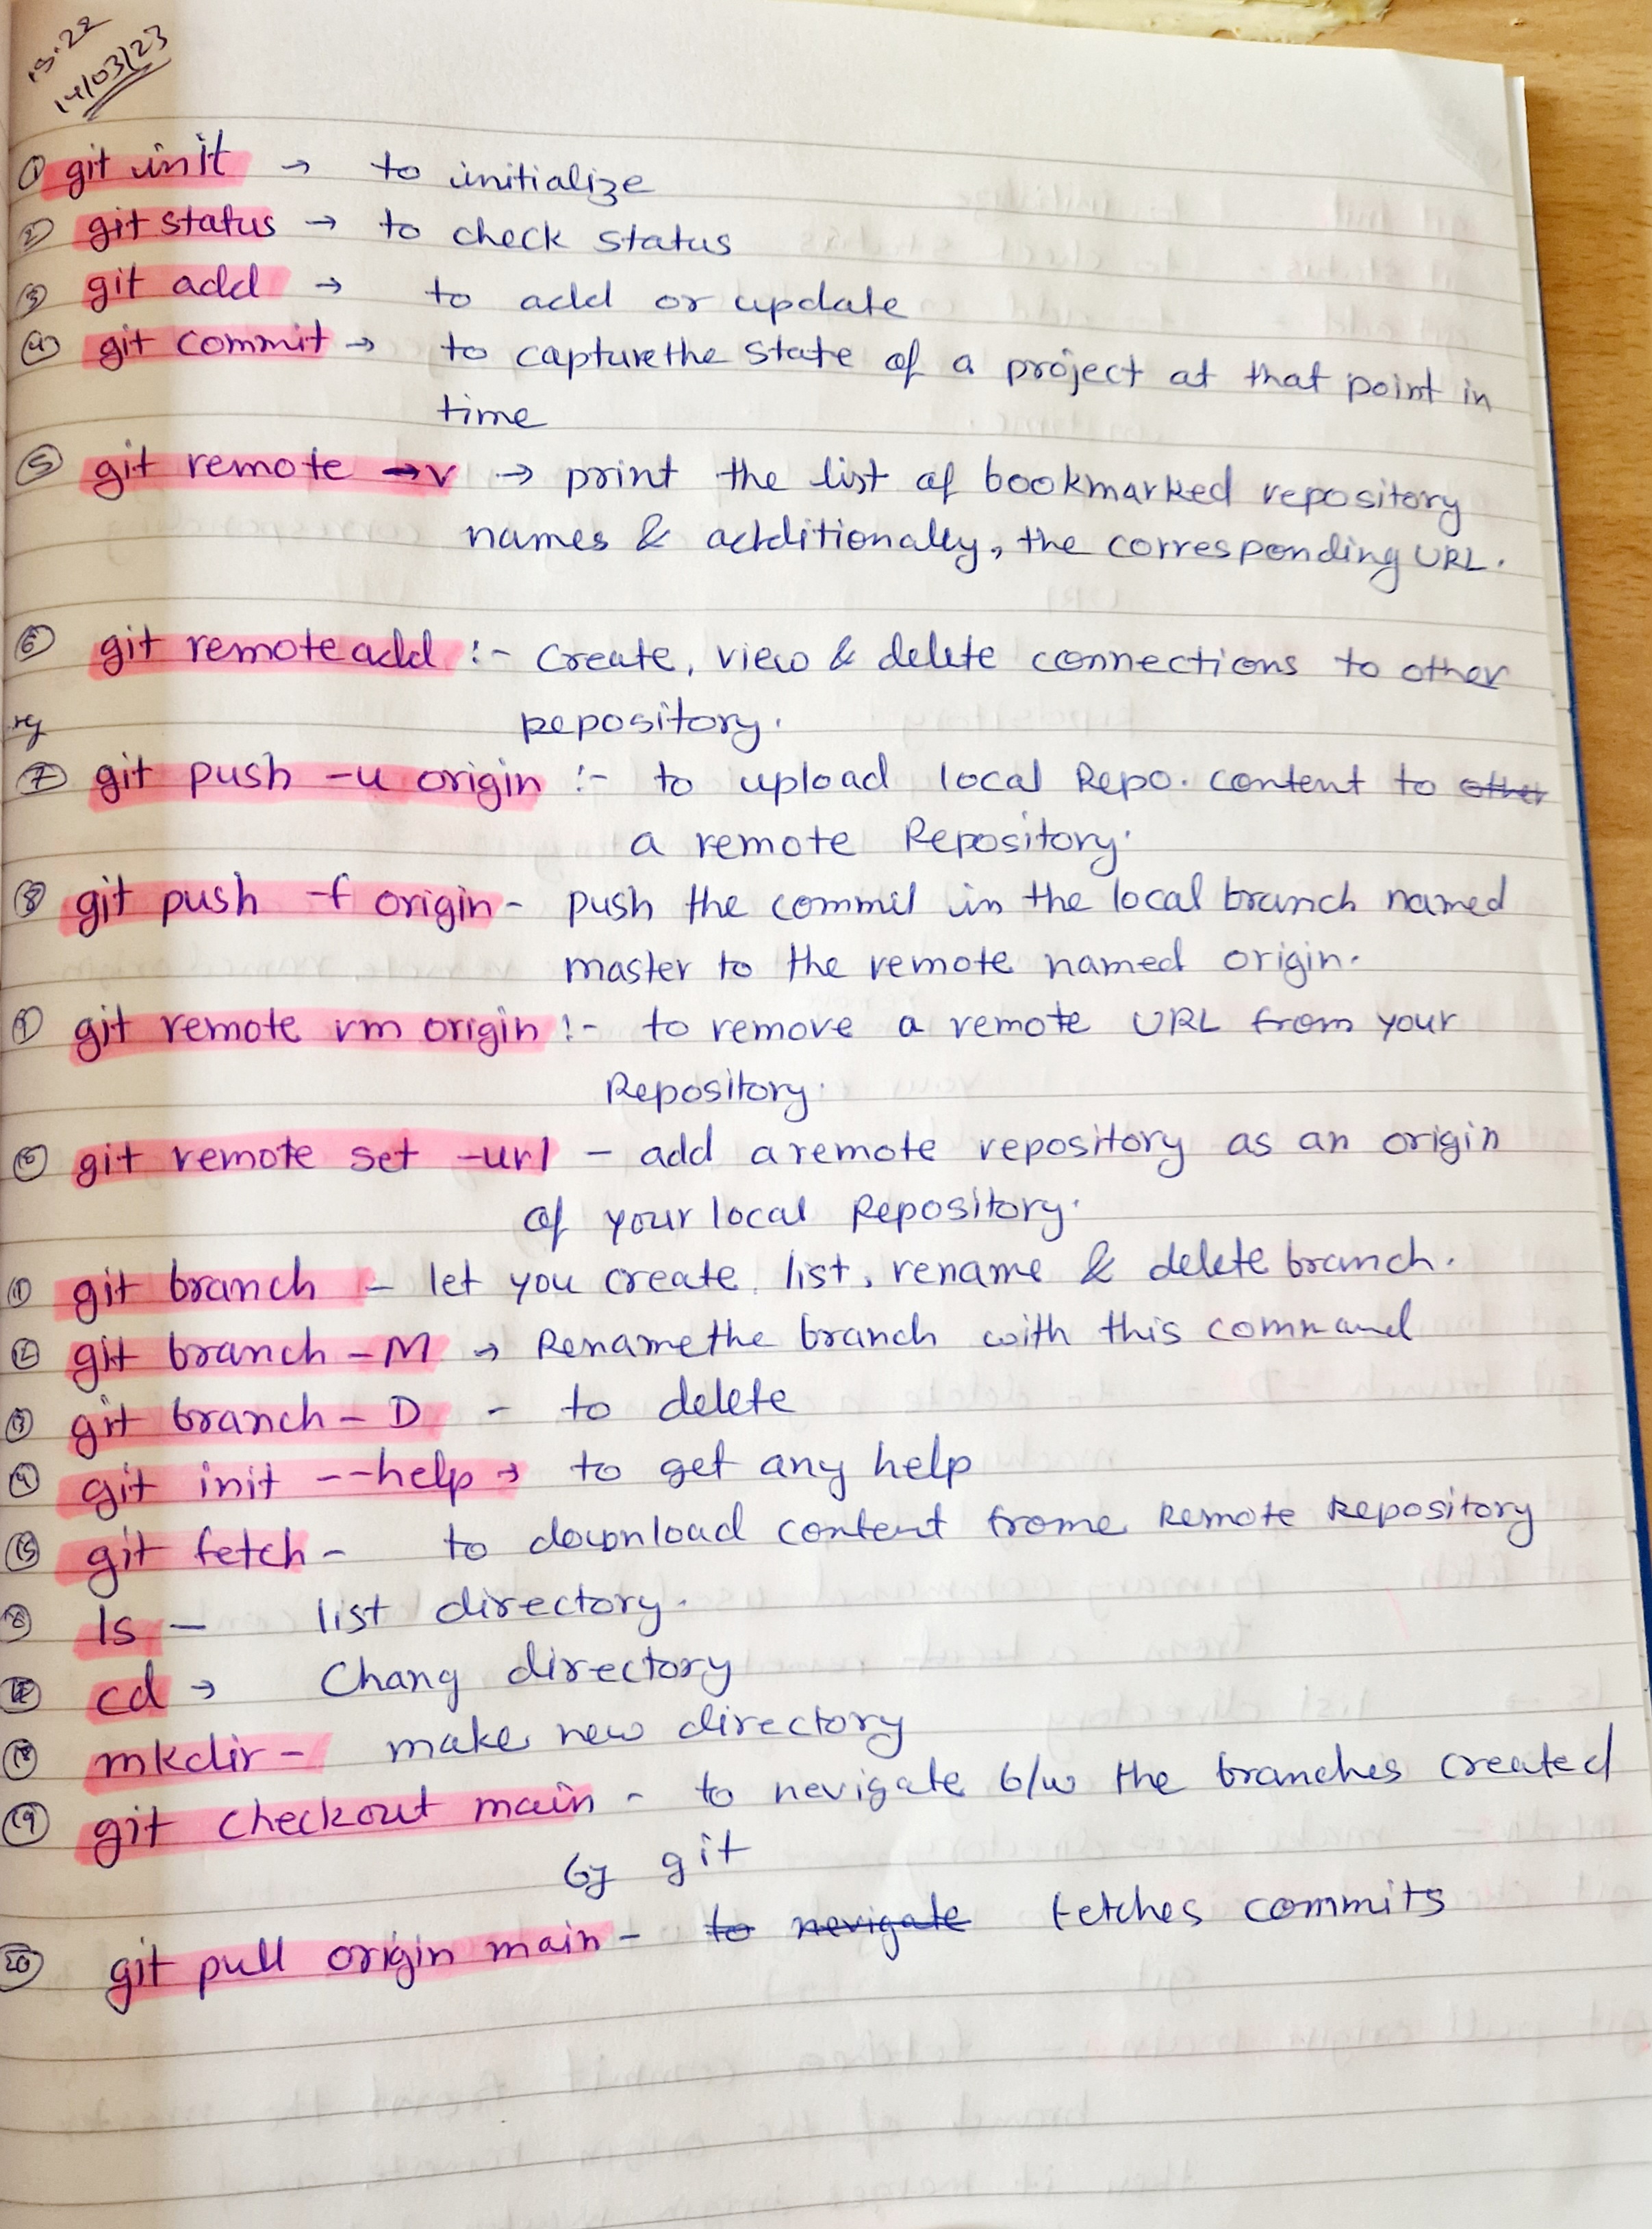 15:22
14/03/23
① git init → to initialize
② git status → to check status
③ git add → to add or update
④ git commit → to capture the state of a project at that point in
time
⑤ git remote -v → print the list of bookmarked repository
names & additionally, the corresponding URL.
⑥ git remote add :- create, view & delete connections to other
repository.
⑦ git push -u origin :- to upload local Repo. content to other
a remote Repository.
⑧ git push -f origin - push the commit in the local branch named
master to the remote named origin.
⑨ git remote rm origin :- to remove a remote URL from your
Repository.
⑩ git remote set -url - add a remote repository as an origin
of your local Repository.
⑪ git branch - let you create, list, rename & delete branch.
⑫ git branch -M → Rename the branch with this command
⑬ git branch - D - to delete
⑭ git init --help → to get any help
⑮ git fetch - to download content frome Remote Repository
⑯ ls - list directory.
⑰ cd → Chang directory
⑱ mkdir - make new directory
⑲ git checkout main - to nevigate b/w the branches created
by git
⑳ git pull origin main - to nevigate fetches commits